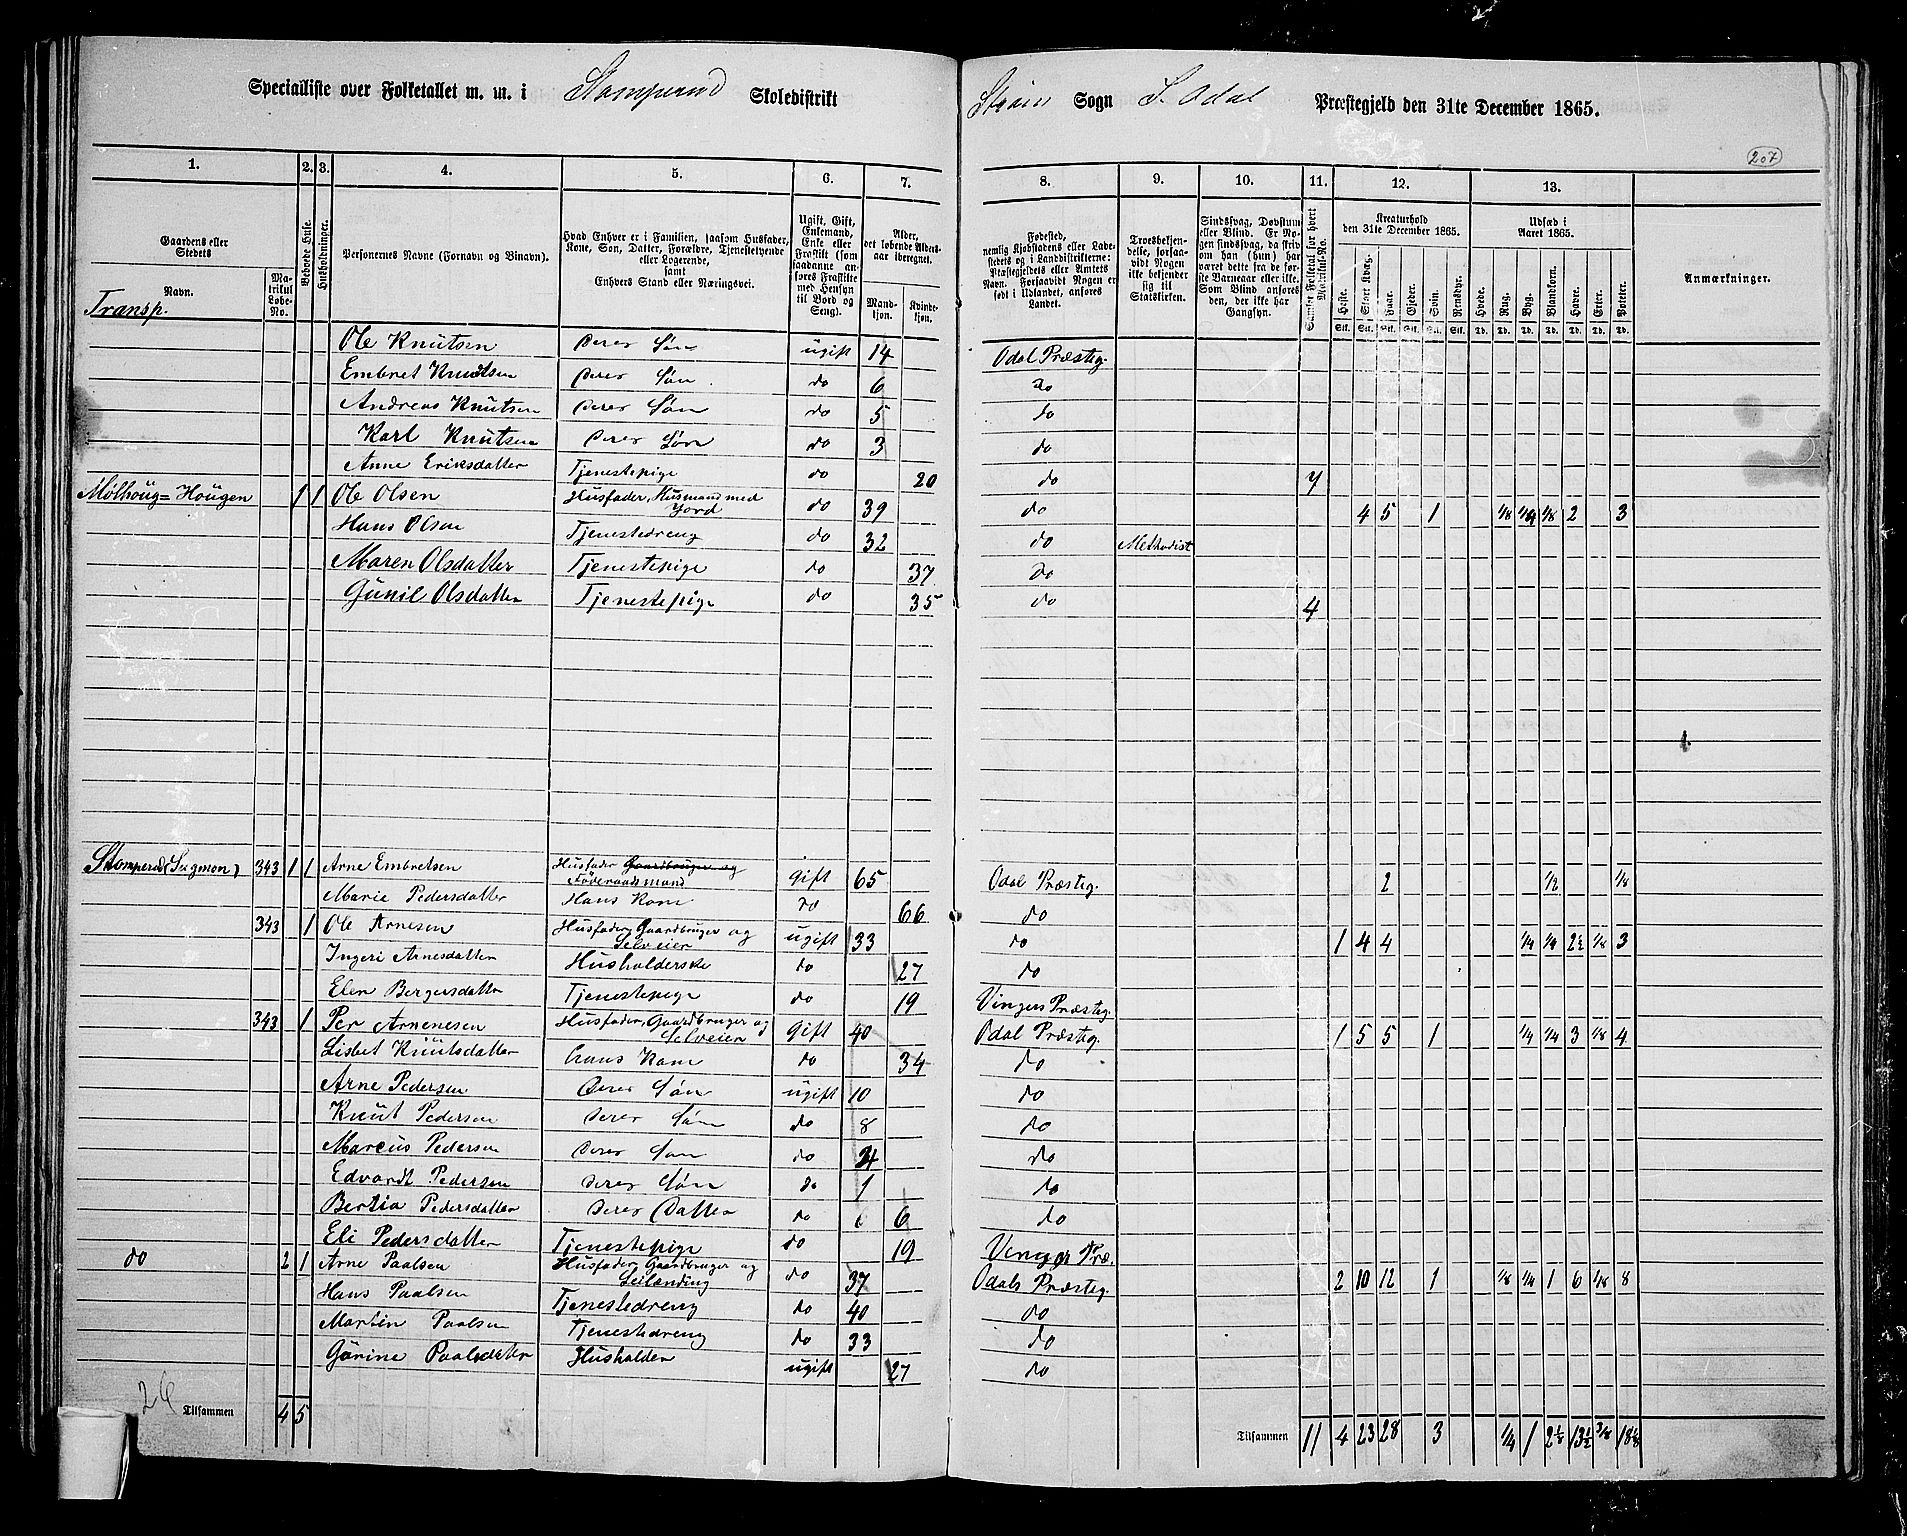 Specialliste over Folketallet m. m. i Stomperud Skoledistrikt Strøm Sogn S. Odal Præstegjeld den 31te December 1865.
207
1. 2. 3. 4. 5. 6. 7. 8. 9. 10. 11. 12. 13.
Gaardens eller Stedets Navn.
Matrikul Løbe-No.
Beboede Huse.
Husholdninger.
Personernes Navne (Fornavn og Binavn).
Hvad Enhver er i Familien, saasom Husfader, Kone, Søn, Datter, Forældre, Tjenestetyende eller Logerende, samt Enhvers Stand eller Næringsvei.
Ugift, Gift, Enkemand, Enke eller Fraskilt (som saadanne anføres Fraskilte med Hensyn til Bord og Seng).
Alder, det løbende Aldersaar iberegnet.
Mandkjøn. Kvindekjøn.
Fødested, nemlig Kjøbstadens eller Ladestedets og i Landdistrikterne: Præstegjeldets eller Amtets Navn. Forsaavidt Nogen er født i Udlandet, anføres Landet.
Troesbekjendelse, forsaavidt Nogen ikke bekjender sig til Statskirken.
Sindssvag, Døvstum eller Blind. Er Nogen sindssvag, da skrives om han (hun) har været dette fra de første Barneaar eller ikke. Som Blind anføres den, der ikke har Gangsyn.
Samlet Folketal for hvert Matrikul-No.
Kreaturhold den 31te December 1865.
Heste. Stort Kvæg. Faar. Gjeder. Svin. Rensdyr.
Udsæd i Aaret 1865.
Hvede. Rug. Byg. Blandkorn. Havre. Erter. Poteter.
Anmærkninger.
Transp.
Ole Knutsen Deres Søn ugift 14 Odal Præsteg.
Embret Knudtsen Deres Søn do 6 do
Andreas Knutsen Deres Søn do 5 do
Karl Knutsen Deres Søn do 3 do
Anne Eriksdatter Tjenestepige do 20 do 7
Mølhoug=Hougen 1 1 Ole Olsen Husfader, Husmand med Jord do 39 do 4 5 1 1/8 1/4 1/8 2 3
Hans Olsen Tjenestedreng do 32 do Methodist
Maren Olsdatter Tjenestepige do 37 do
Gunil Olsdatter Tjenestepige do 35 do 4
343 1 1 Arne Embretsen Husfader Gaardbruger og Føderaadsmand gift 65 Odal Præsteg. 2 1/2 1/8
Marie Pedersdatter Hans Kone do 66 do
343 1 Ole Arnesen Husfader, Gaardbruger og Selveier ugift 33 do 1 4 4 1/4 1/4 2 1/2 1/8 3
Ingeri Arnesdatter Husholderske do 27 do
Elen Bergersdatter Tjenestepige do 19 Vingers Præsteg.
343 1 Per Arnenesen Husfader, Gaardbruger og Selveier gift 40 Odal Præsteg. 1 5 5 1 1/4 1/4 3 1/8 4
Lisbet Knutsdatter Hans Kone do 34 do
Arne Pedersen Deres Søn ugift 10 do
Knut Pedersen Deres Søn do 8 do
Marcus Pedersen Deres Søn do do
Edvardt Pedersen Deres Søn do 1 do
Bertia Pedersdatter Deres Datter do 6 do
Eli Pedersdatter Tjenestepige do 19 Vinger Præ.
do 2 1 Arne Paalsen Husfader, Gaardbruger og Leilænding do 37 Odals Præsteg. 2 10 12 1 1/8 1/4 1 6 1/8 8
Hans Paalsen Tjenestedreng do 40 do
Martin Paalsen Tjenestedreng do 33 do
Gurine Paalsdatter Husholder ugift 27 do
26 Tilsammen 4 5 Tilsammen 11 4 23 28 3 1/4 1 2 1/8 13 1/2 3/8 18 1/8